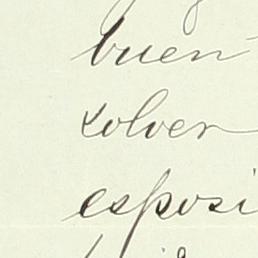 buen
solver
esposi